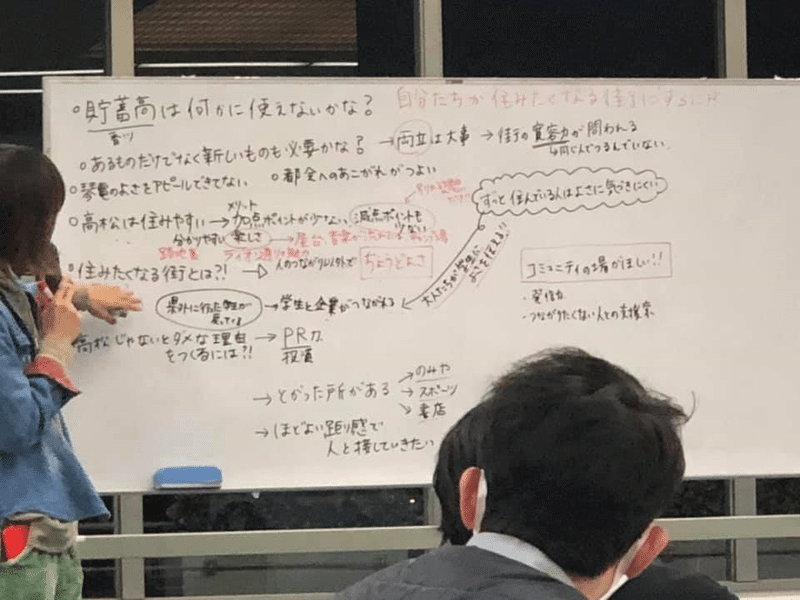 自分たちが住みたくなる街にするには
・貯蓄高は何かに使えないかな?
香川
・あるものだけでなく新しいものも必要かな?→両立は大事→街の寛容力が問われる
○琴電のよさをアピールできてない ○都会へのあこがれがつよい
ずっと住んでいる人はよさに気づきにくい
メリット
○高松は住みやすい→加点ポイントが少ない 減点ポイントも少ない
分かりやすい 楽しさ→屋台、音楽が流れてる
路地裏 ライオン通りの魅力
・住みたくなる街とは?!→人のつながり以外で ちょうどよさ
大人たちが学生によさを伝える!!
県外に行った学生が戻ってくる→学生と企業がつながれる
コミュニティの場がほしい!!
・発信力
・つながりたくない人との支援策
高松じゃないとダメな理由をつくるには?!→PR力
投資
→とがった所がある→のみや
→スポーツ
→書店
→ほどよい距り感で
人と接していきたい